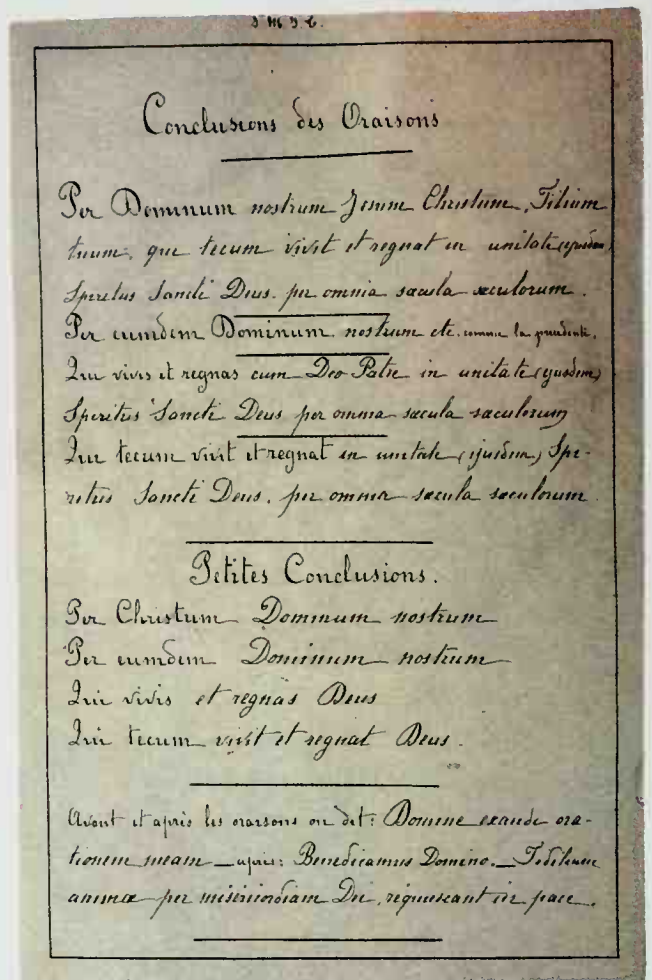 J M J T.
Conclusions des Oraisons
Per Dominum nostrum Jesum Christum, Filium
tuum, qui tecum vivit et regnat in unitate (ejusdem)
Spiritus Sancti Deus. per omnia sæcula sæculorum.
Per eumdem Dominum nostrum etc. comme la précédente.
Qui vivis et regnas cum Deo Patre in unitate (ejusdem)
Spiritus Sancti Deus per omnia sæcula sæculorum
Qui tecum vivit et regnat in unitate (ejusdem) Spi-
ritus Sancti Deus. per omnia sæcula sæculorum.
Petites Conclusions.
Per Christum Dominum nostrum
Per eumdem Dominum nostrum
Qui vivis et regnas Deus
Qui tecum vivit et regnat Deus.
Avant et après les oraisons on dit: Domine exaudi ora-
tionem meam — après: Benedicamus Domino. — Fidelium
animæ per misericordiam Dei, requiescant in pace.